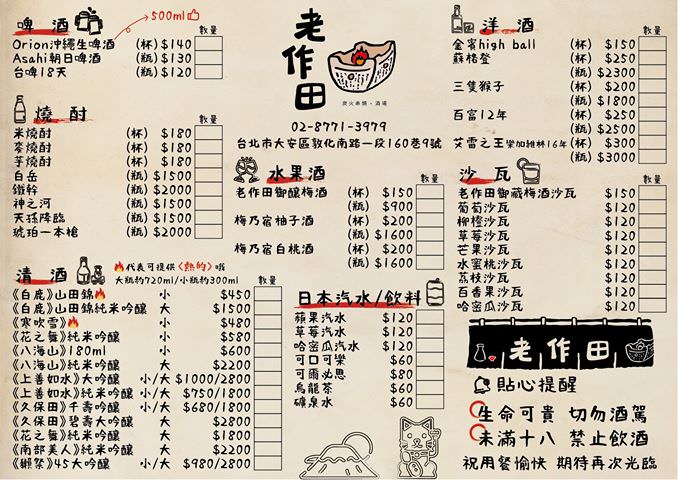 啤酒
500ml
數量
Orion沖繩生啤酒 (杯) $140
Asahi朝日啤酒 (瓶) $130
台啤18天 (瓶) $120
燒酎
數量
米燒酎 (杯) $180
麥燒酎 (杯) $180
芋燒酎 (杯) $180
白岳 (瓶) $1500
鐵幹 (瓶) $2000
神之河 (瓶) $1500
天孫降臨 (瓶) $1500
琥珀一本槍 (瓶) $2000
清酒
代表可提供〈熱的〉哦
大瓶約720ml/小瓶約300ml
數量
《白鹿》山田錦 小 $450
《白鹿》山田錦純米吟釀 大 $1500
《寒吹雪》 小 $480
《花之舞》純米吟釀 小 $580
《八海山》180ml 小 $600
《八海山》純米吟釀 大 $2200
《上善如水》大吟釀 小/大 $1000/2800
《上善如水》純米吟釀 小/大 $750/1800
《久保田》千壽吟釀 小/大 $680/1800
《久保田》碧壽大吟釀 大 $2800
《花之舞》純米吟釀 大 $1800
《南部美人》純米吟釀 大 $2200
《獺祭》45大吟釀 小/大 $980/2800
老作田
炭火串燒·酒場
02-8771-3979
台北市大安區敦化南路一段160巷9號
水果酒
數量
老作田御釀梅酒 (杯) $150
(瓶) $900
梅乃宿柚子酒 (杯) $200
(瓶) $1600
梅乃宿白桃酒 (杯) $200
(瓶) $1600
日本汽水/飲料
數量
蘋果汽水 $120
草莓汽水 $120
哈密瓜汽水 $120
可口可樂 $60
可爾必思 $80
烏龍茶 $60
礦泉水 $60
洋酒
數量
金賓high ball (杯) $150
蘇格登 (杯) $250
(瓶) $2300
三隻猴子 (杯) $200
(瓶) $1800
百富12年 (杯) $250
(瓶) $2500
艾雷之王樂加維林16年 (杯) $300
(瓶) $3000
沙瓦
數量
老作田御藏梅酒沙瓦 $150
葡萄沙瓦 $120
柳橙沙瓦 $120
草莓沙瓦 $120
芒果沙瓦 $120
水蜜桃沙瓦 $120
荔枝沙瓦 $120
百香果沙瓦 $120
哈密瓜沙瓦 $120
老作田
貼心提醒
生命可貴 切勿酒駕
未滿十八 禁止飲酒
祝用餐愉快 期待再次光臨